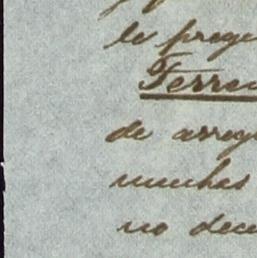 le preg
Ferre
de arreg
muchas
no dec